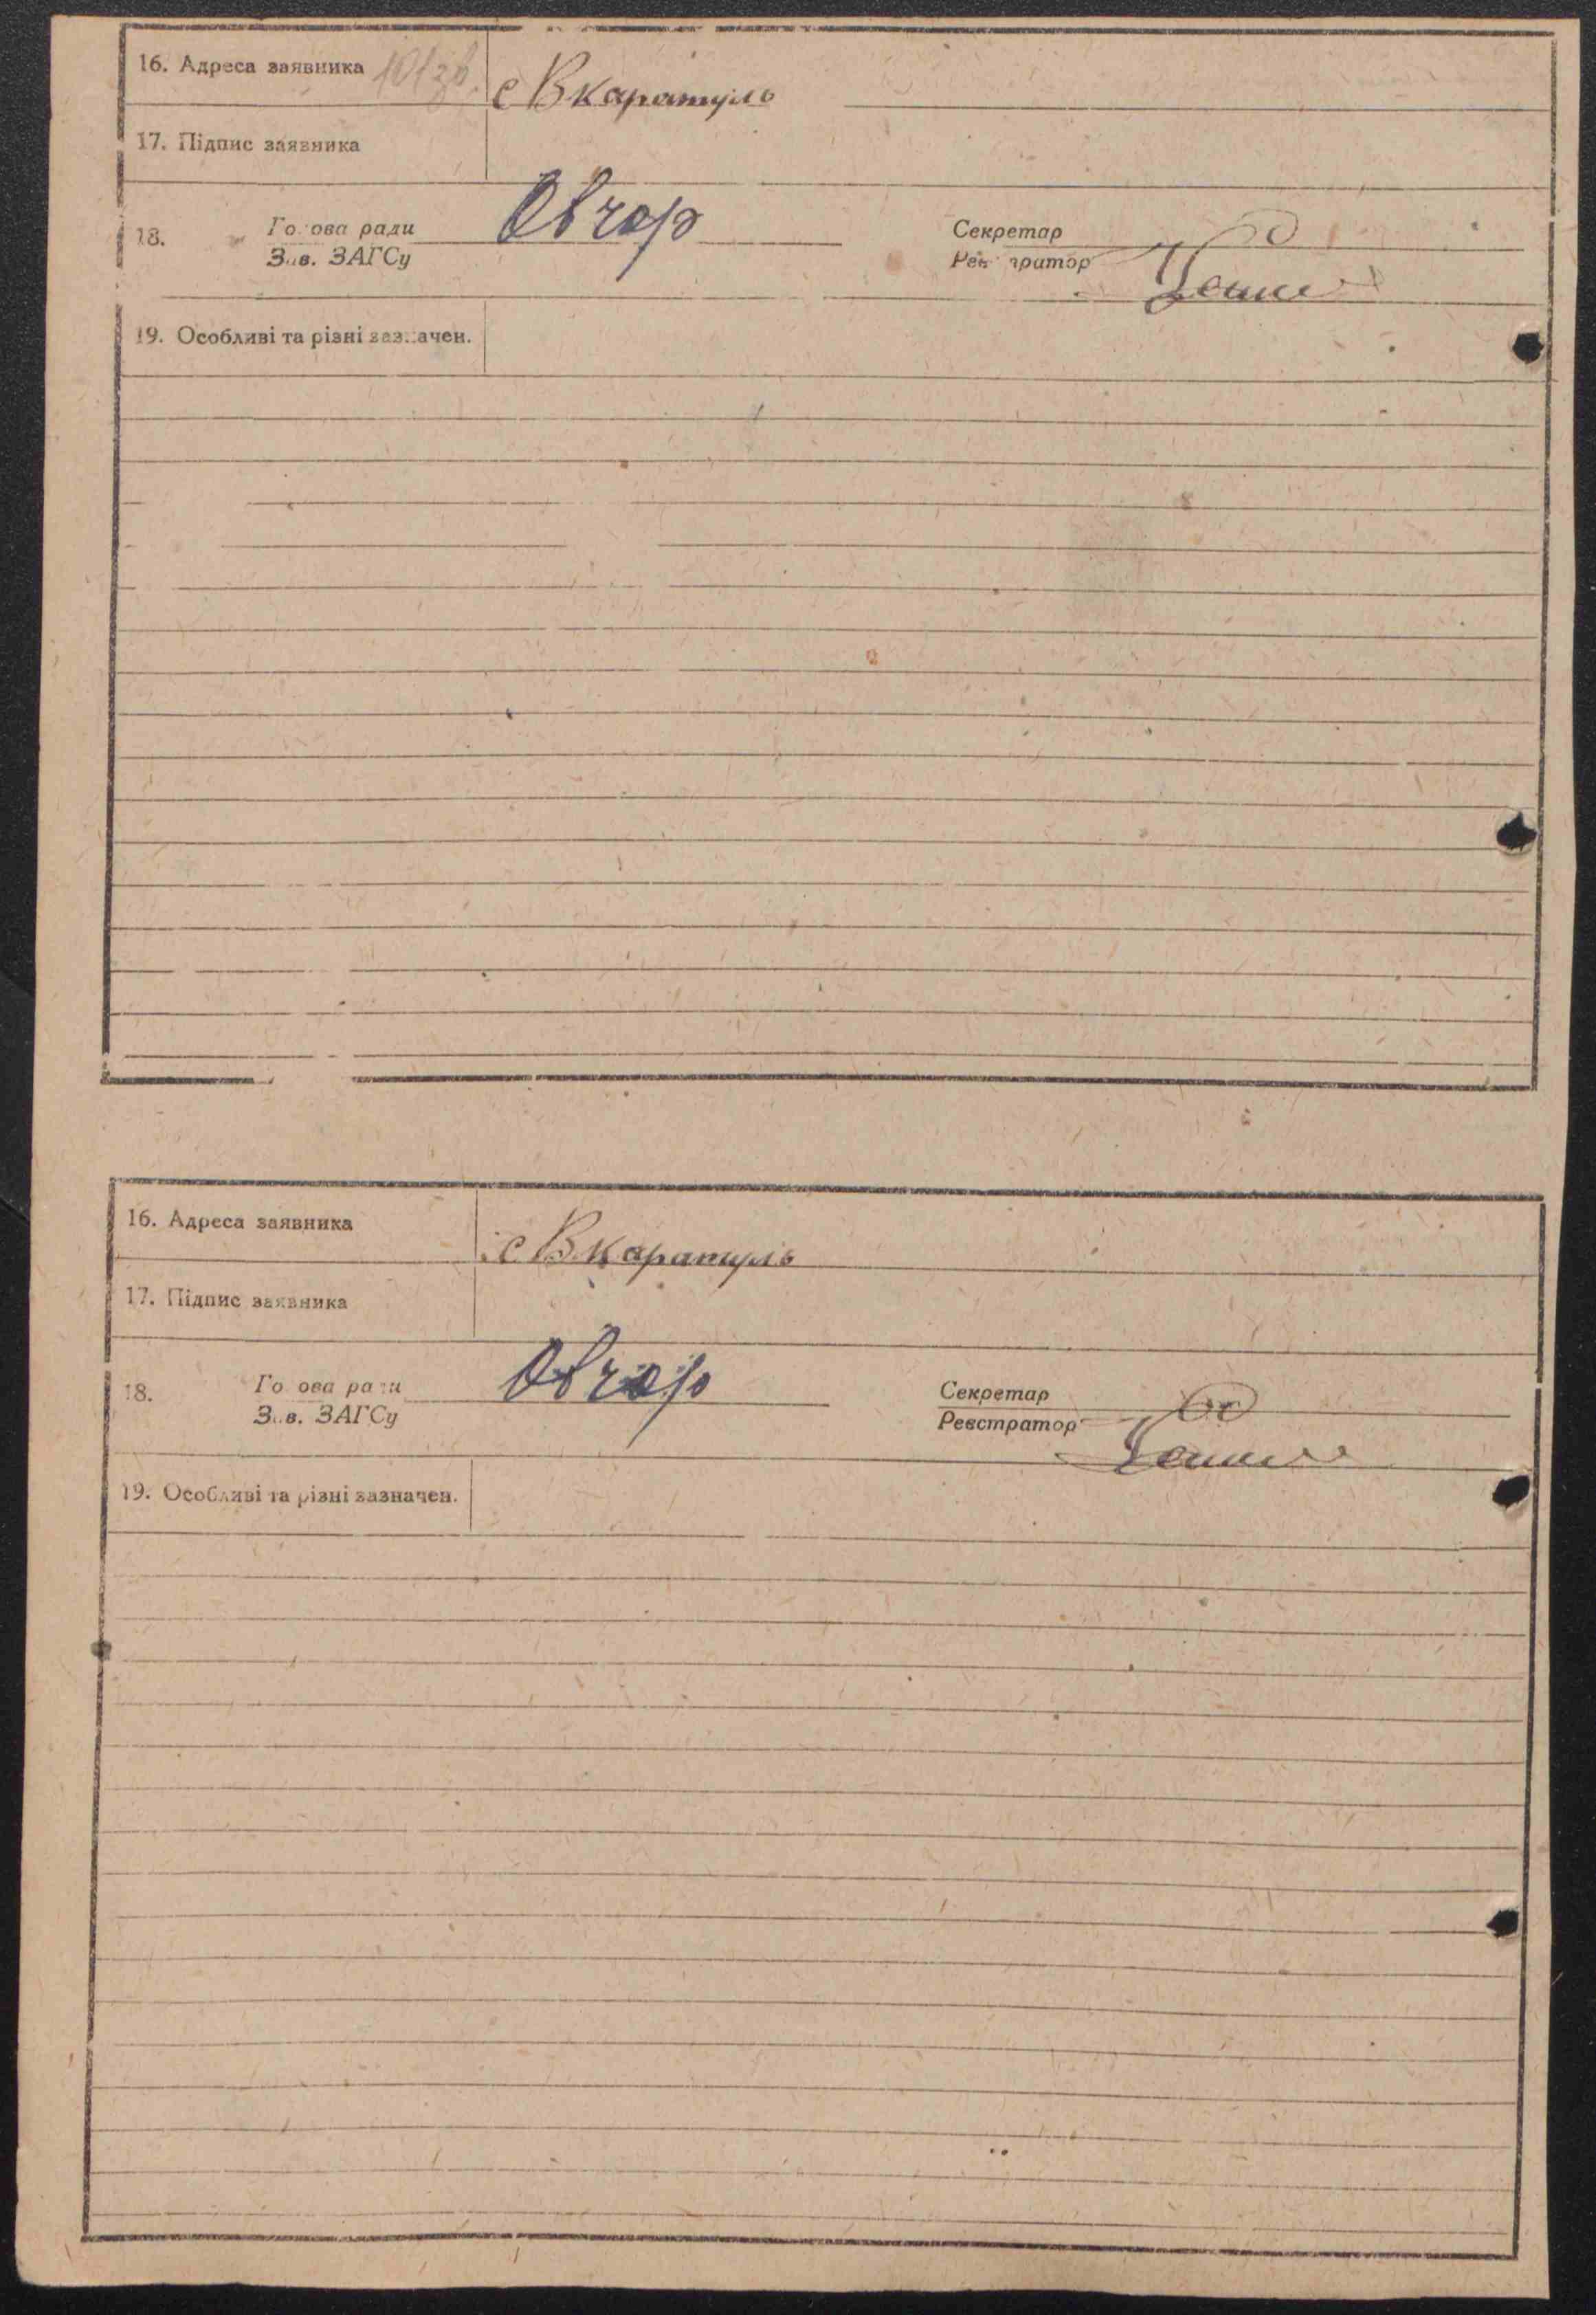 16. Адреса заявника с Вкаратуль
17. Підпис заявника
18. Голова ради Овчар Секретар
Зав. ЗАГСу Реєстратор
19. Особливі та різні зазначен.
16. Адреса заявника с Вкаратуль
17. Підпис заявника
18. Голова ради Овчар Секретар
Зав. ЗАГСу Реєстратор
19. Особливі та різні зазначен.